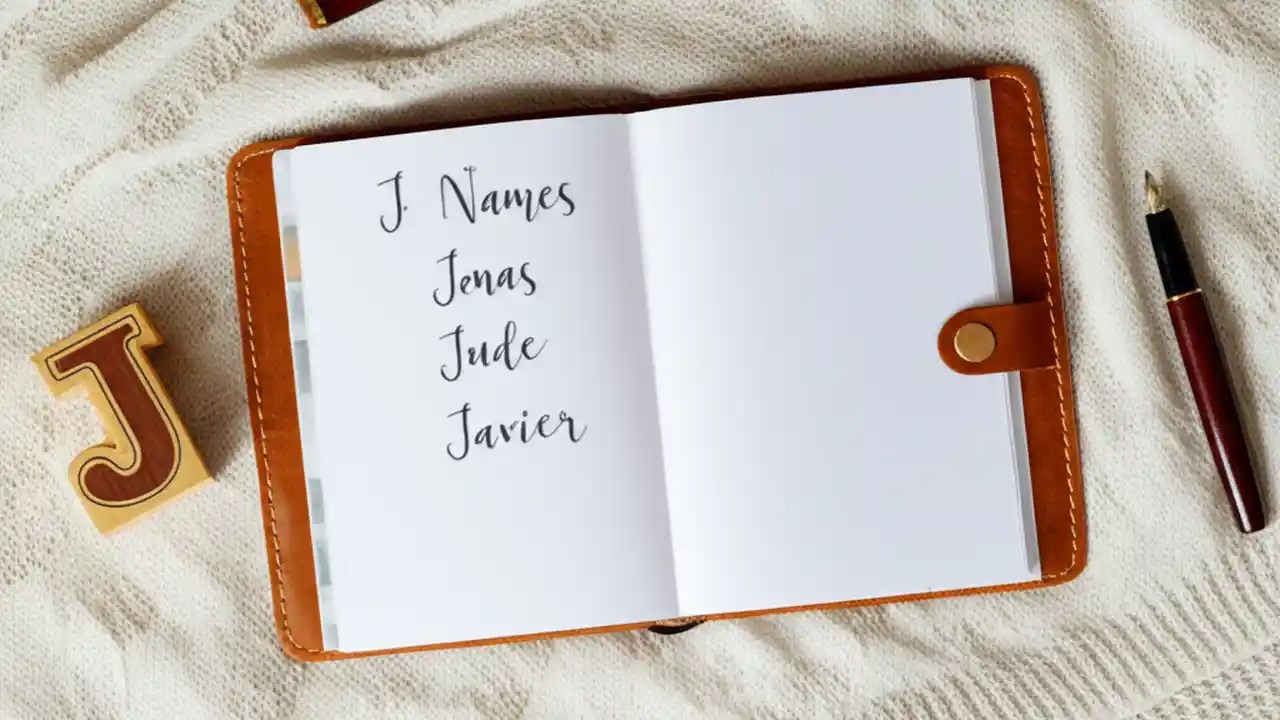 J. Names
Jenas
Jude
Javier
J